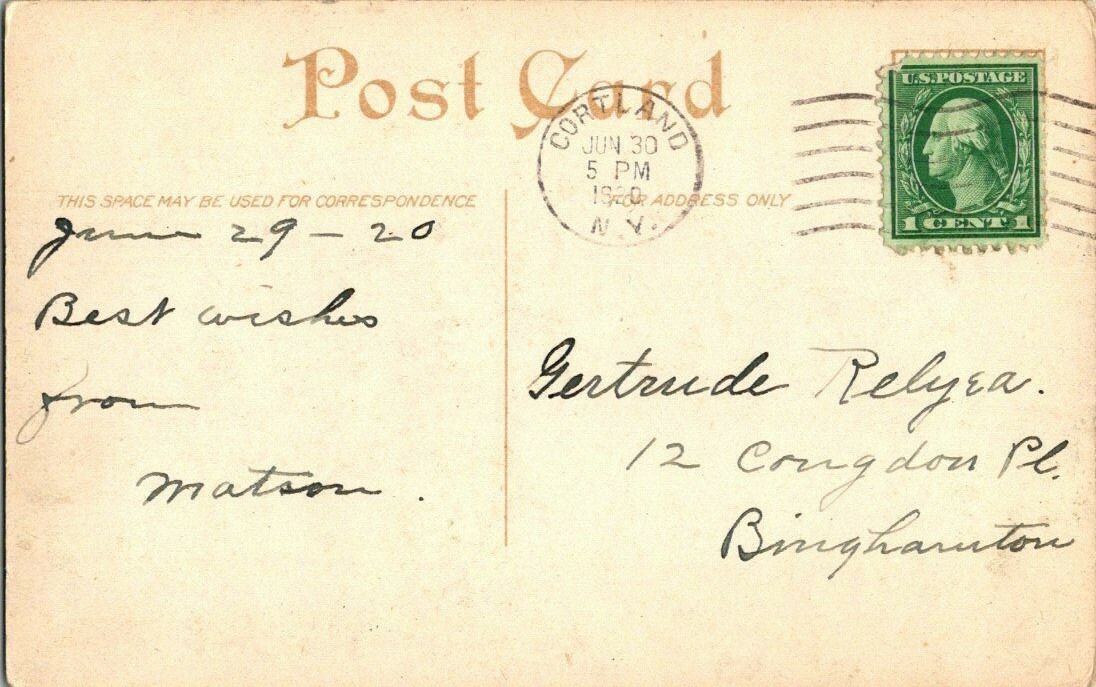 Post Card
CORTLAND
JUN 30
5 PM
1920
N.Y.
U.S. POSTAGE
1 CENT 1
THIS SPACE MAY BE USED FOR CORRESPONDENCE
FOR ADDRESS ONLY
June 29 - 20
Best wishes
from
Matson.
Gertrude Relyea.
12 Congdon Pl.
Binghamton